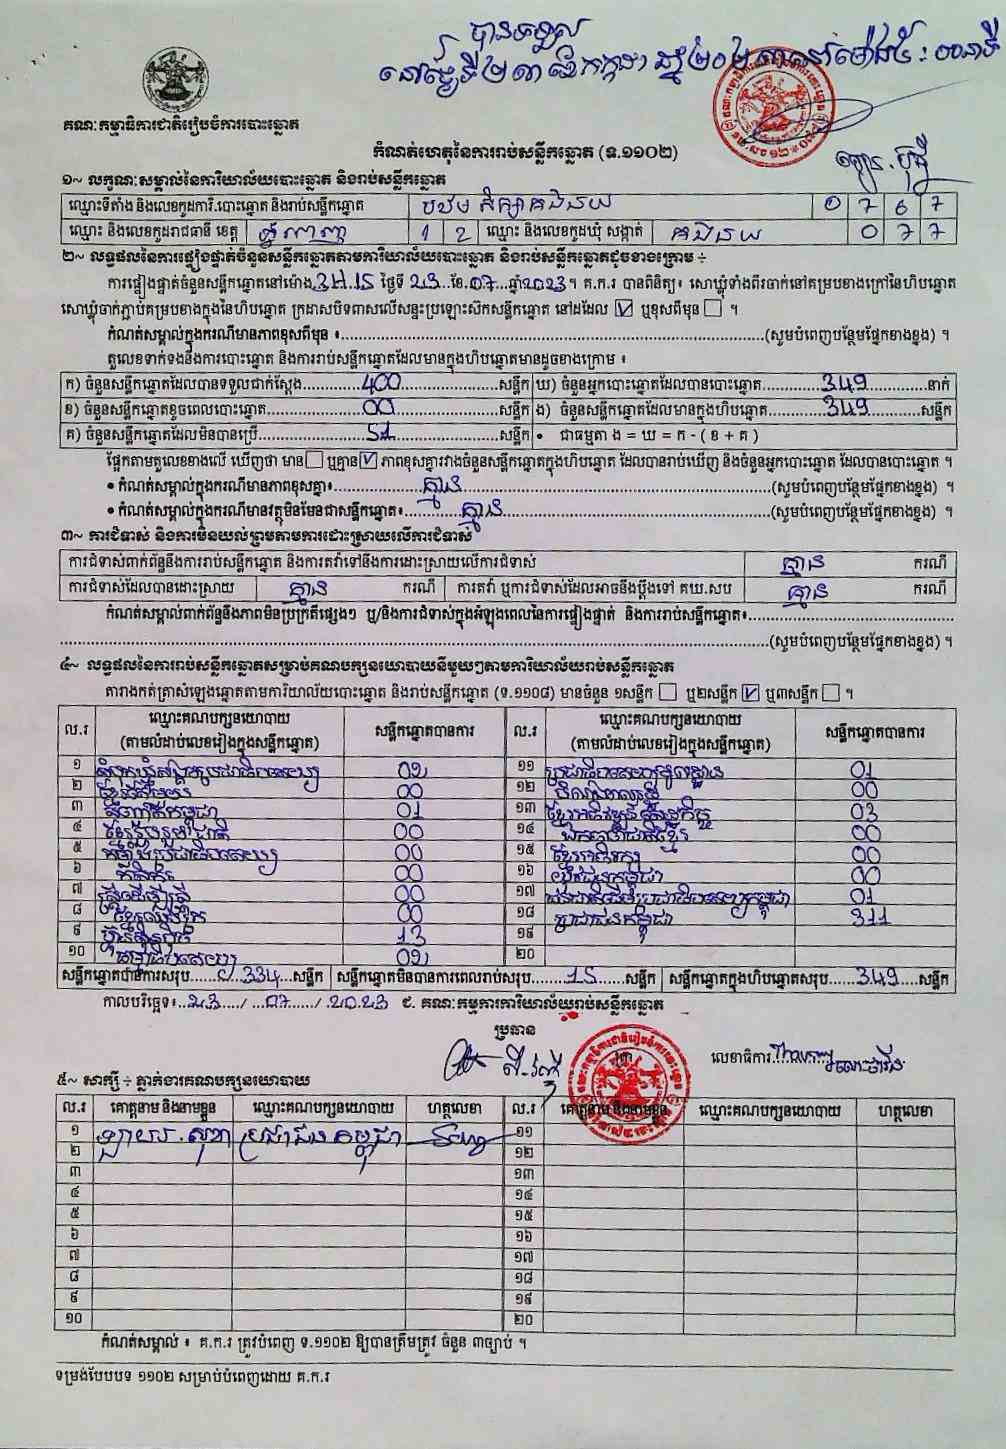 បានទទួល
គណៈកម្មាធិការជាតិរៀបចំការបោះឆ្នោត
កំណត់ហេតុនៃការរាប់សន្លឹកឆ្នោត (ទ.១១០២)
១~ លក្ខណៈសម្គាល់នៃការិយាល័យបោះឆ្នោត និងរាប់សន្លឹកឆ្នោត
ឈ្មោះទីតាំង និងលេខកូដការិ.បោះឆ្នោត និងរាប់សន្លឹកឆ្នោត បឋមសិក្សាគងនយ 0 7 6 7
ឈ្មោះ និងលេខកូដរាជធានី ខេត្ត ភ្នំពេញ 1 2 ឈ្មោះ និងលេខកូដឃុំ សង្កាត់ គងនយ 0 7 7
២~ លទ្ធផលនៃការផ្ទៀងផ្ទាត់ចំនួនសន្លឹកឆ្នោតតាមការិយាល័យបោះឆ្នោត និងរាប់សន្លឹកឆ្នោតដូចខាងក្រោម ÷
ការផ្ទៀងផ្ទាត់ចំនួនសន្លឹកឆ្នោតនៅម៉ោង 3H:15 ថ្ងៃទី 23 ខែ 07 ឆ្នាំ 2023 ។ គ.ក.រ បានពិនិត្យ៖ សោឃ្លុំទាំងពីរចាក់នៅគម្របខាងក្រៅនៃហិបឆ្នោត
សោឃ្លុំចាក់ភ្ជាប់គម្របខាងក្នុងនៃហិបឆ្នោត ក្រដាសបិទពាសលើសន្ទះប្រឡោះស៊កសន្លឹកឆ្នោត នៅដដែល ☑ ឬខុសពីមុន ☐ ។
កំណត់សម្គាល់ក្នុងករណីមានភាពខុសពីមុន ៖ (សូមបំពេញបន្ថែមផ្នែកខាងខ្នង) ។
តួលេខទាក់ទងនឹងការបោះឆ្នោត និងការរាប់សន្លឹកឆ្នោតដែលមានក្នុងហិបឆ្នោតមានដូចខាងក្រោម ៖
ក) ចំនួនសន្លឹកឆ្នោតដែលបានទទួលជាក់ស្តែង 400 សន្លឹក ឃ) ចំនួនអ្នកបោះឆ្នោតដែលបានបោះឆ្នោត 349 នាក់
ខ) ចំនួនសន្លឹកឆ្នោតខូចពេលបោះឆ្នោត 00 សន្លឹក ង) ចំនួនសន្លឹកឆ្នោតដែលមានក្នុងហិបឆ្នោត 349 សន្លឹក
គ) ចំនួនសន្លឹកឆ្នោតដែលមិនបានប្រើ 51 សន្លឹក • ជាធម្មតា ង = ឃ = ក - ( ខ + គ )
ផ្អែកតាមតួលេខខាងលើ ឃើញថា មាន ☐ ឬគ្មាន ☑ ភាពខុសគ្នារវាងចំនួនសន្លឹកឆ្នោតក្នុងហិបឆ្នោត ដែលបានរាប់ឃើញ និងចំនួនអ្នកបោះឆ្នោត ដែលបានបោះឆ្នោត ។
• កំណត់សម្គាល់ក្នុងករណីមានភាពខុសគ្នា៖ គ្មាន (សូមបំពេញបន្ថែមផ្នែកខាងខ្នង) ។
• កំណត់សម្គាល់ក្នុងករណីមានវត្ថុមិនមែនជាសន្លឹកឆ្នោត៖ គ្មាន (សូមបំពេញបន្ថែមផ្នែកខាងខ្នង) ។
៣~ ការជំទាស់ និងការមិនយល់ព្រមតាមការដោះស្រាយលើការជំទាស់
ការជំទាស់ពាក់ព័ន្ធនឹងការរាប់សន្លឹកឆ្នោត និងការតវ៉ាទៅនឹងការដោះស្រាយលើការជំទាស់ គ្មាន ករណី
ការជំទាស់ដែលបានដោះស្រាយ គ្មាន ករណី ការតវ៉ា ឬការជំទាស់ដែលអាចនឹងប្តឹងទៅ គឃ.សប គ្មាន ករណី
កំណត់សម្គាល់ពាក់ព័ន្ធនឹងភាពមិនប្រក្រតីផ្សេងៗ ឬ/និងការជំទាស់ក្នុងអំឡុងពេលនៃការផ្ទៀងផ្ទាត់ និងការរាប់សន្លឹកឆ្នោត៖
(សូមបំពេញបន្ថែមផ្នែកខាងខ្នង) ។
៤~ លទ្ធផលនៃការរាប់សន្លឹកឆ្នោតសម្រាប់គណបក្សនយោបាយនីមួយៗតាមការិយាល័យរាប់សន្លឹកឆ្នោត
តារាងកត់ត្រាសំឡេងឆ្នោតតាមការិយាល័យបោះឆ្នោត និងរាប់សន្លឹកឆ្នោត (ទ.១១០៨) មានចំនួន ១សន្លឹក ☐ ឬ២សន្លឹក ☑ ឬ៣សន្លឹក ☐ ។
ល.រ ឈ្មោះគណបក្សនយោបាយ (តាមលំដាប់លេខរៀងក្នុងសន្លឹកឆ្នោត) សន្លឹកឆ្នោតបានការ ល.រ ឈ្មោះគណបក្សនយោបាយ (តាមលំដាប់លេខរៀងក្នុងសន្លឹកឆ្នោត) សន្លឹកឆ្នោតបានការ
១ សំបុកឃ្មុំសង្គមប្រជាធិបតេយ្យ 02 ១១ 01
២ 00 ១២ 00
៣ 01 ១៣ ខ្មែរអភិវឌ្ឍន៍សេដ្ឋកិច្ច 03
៤ ខ្មែររួបរួមជាតិ 00 ១៤ ឯកភាពជាតិខ្មែរ 00
៥ 00 ១៥ ខ្មែរអភិរក្ស 00
៦ កសិករ 00 ១៦ យុវជនកម្ពុជា 00
៧ ស្ត្រីដើម្បីស្ត្រី 00 ១៧ 01
៨ 00 ១៨ ប្រជាជនកម្ពុជា 311
៩ ហ៊្វុនស៊ិនប៉ិច 13 ១៩
១០ ធម្មាធិបតេយ្យ 02 ២០
សន្លឹកឆ្នោតបានការសរុប 334 សន្លឹក សន្លឹកឆ្នោតមិនបានការពេលរាប់សរុប 15 សន្លឹក សន្លឹកឆ្នោតក្នុងហិបឆ្នោតសរុប 349 សន្លឹក
កាលបរិច្ឆេទ៖ 23 / 07 / 2023 ៩. គណៈកម្មការការិយាល័យរាប់សន្លឹកឆ្នោត
ប្រធាន
លេខាធិការ
៥~ សាក្សី ÷ ភ្នាក់ងារគណបក្សនយោបាយ
ល.រ គោត្តនាម និងនាមខ្លួន ឈ្មោះគណបក្សនយោបាយ ហត្ថលេខា ល.រ គោត្តនាម និងនាមខ្លួន ឈ្មោះគណបក្សនយោបាយ ហត្ថលេខា
១ ប្រជាជនកម្ពុជា ១១
២ ១២
៣ ១៣
៤ ១៤
៥ ១៥
៦ ១៦
៧ ១៧
៨ ១៨
៩ ១៩
១០ ២០
កំណត់សម្គាល់ ៖ គ.ក.រ ត្រូវបំពេញ ទ.១១០២ ឱ្យបានត្រឹមត្រូវ ចំនួន ៣ច្បាប់ ។
ទម្រង់បែបបទ ១១០២ សម្រាប់បំពេញដោយ គ.ក.រ